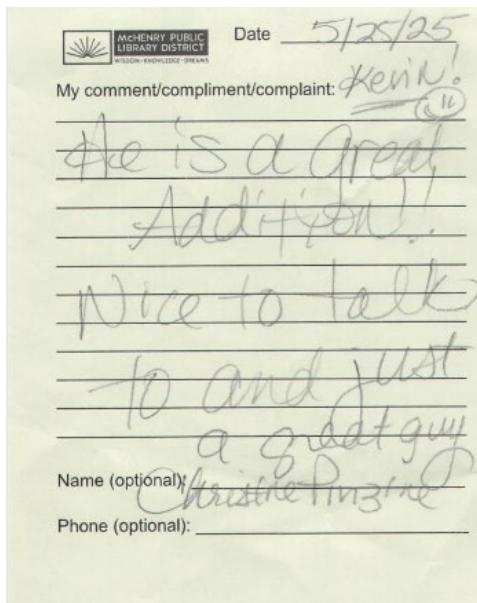 McHENRY PUBLIC
LIBRARY DISTRICT
WISDOM • KNOWLEDGE • DREAMS
Date 5/25/25
My comment/compliment/complaint: Kevin!
He is a great
Addition!!
Nice to talk
to and just
a great guy
Name (optional): Christine
Phone (optional):